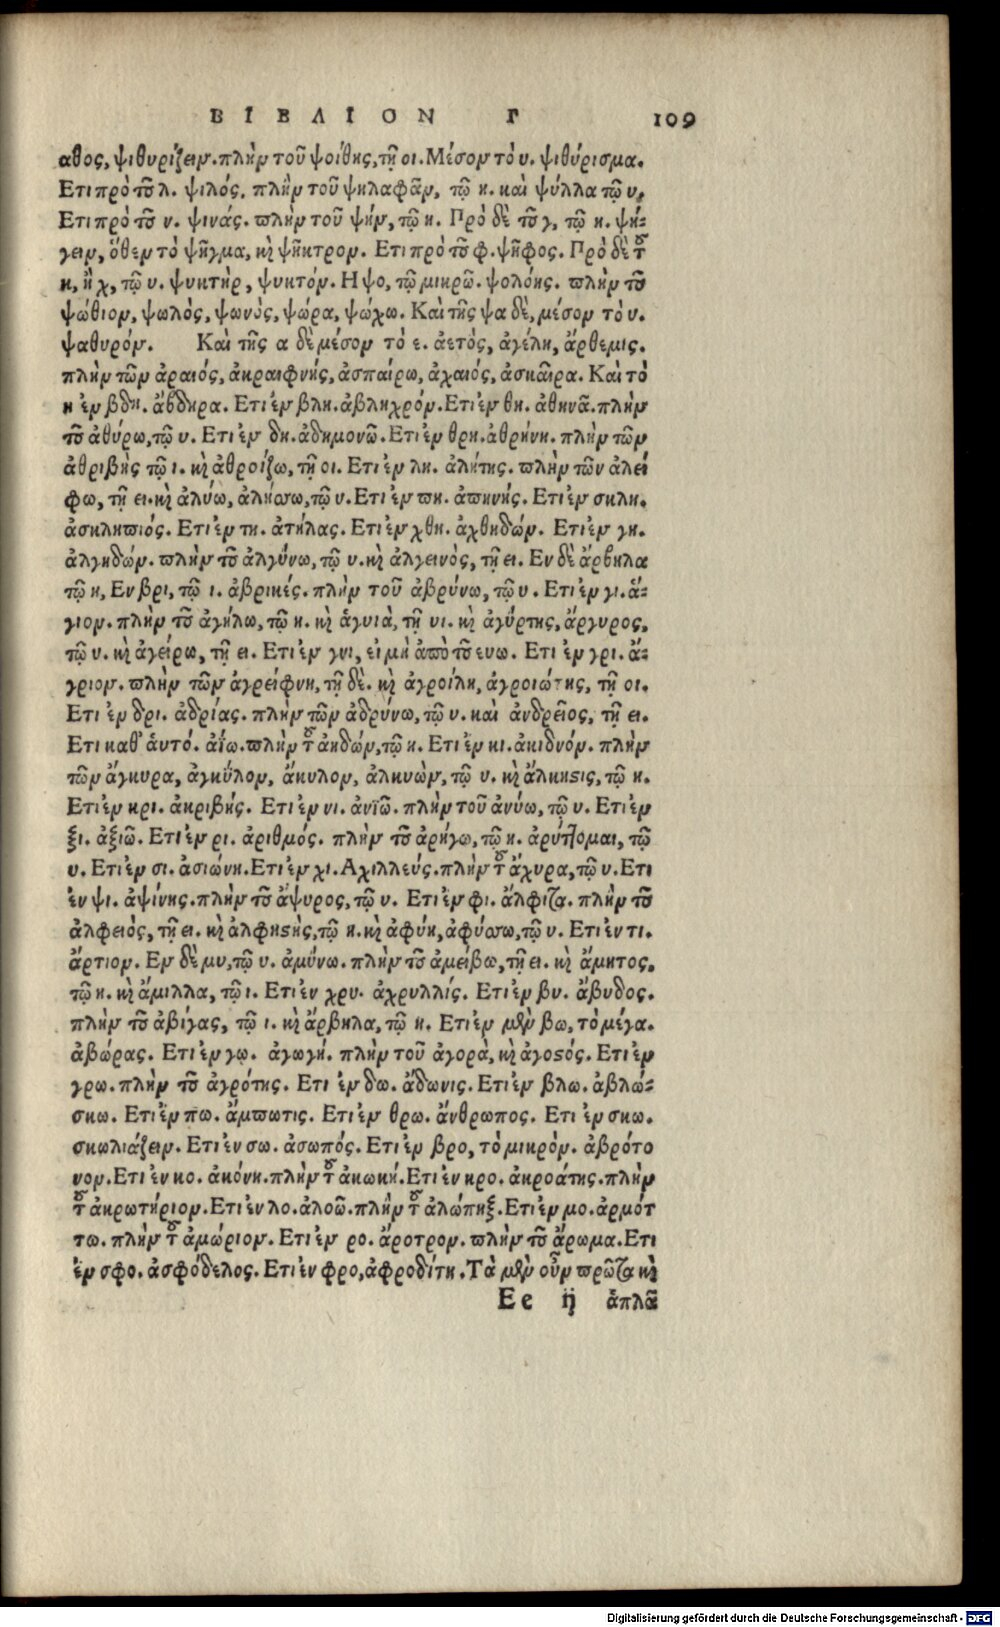 ΒΙΒΛΙΟΝ Γ 109
αθος, ψιθυρίζειν. πλὴν τοῦ ψοίθης, τῇ οι. Μέσον τὸ υ. ψιθύρισμα.
Ετι πρὸ τοῦ λ. ψιλός. πλὴν τοῦ ψηλαφᾶν, τῷ η. καὶ ψύλλα τῷ υ.
Ετι πρὸ τοῦ ν. ψινάς. πλὴν τοῦ ψήν, τῷ η. Πρὸ δὲ τοῦ γ, τῷ η. ψή-
γειν, ὅθεν τὸ ψῆγμα, καὶ ψῆκτρον. Ετι πρὸ τοῦ φ. ψῆφος. Πρὸ δὲ τοῦ
κ, ἢ χ, τῷ υ. ψυκτὴρ, ψυκτόν. Η ψο, τῷ μικρῷ. ψολόης. πλὴν τοῦ
ψώθιον, ψωλὸς, ψωνὸς, ψώρα, ψώχω. Καὶ τῆς ψα δὲ, μέσον τὸ υ.
ψαθυρόν. Καὶ τῆς α δὲ μέσον τὸ ε. ἀετὸς, ἀγέλη, ἄρθεμις.
πλὴν τῶν ἀραιός, ἀκραιφνής, ἀσπαίρω, ἀχαιός, ἀσκαῖρα. Καὶ τὸ
η ἐν βδη. ἄβδηρα. Ετι ἐν βλη. ἀβληχρόν. Ετι ἐν θη. ἀθηνᾶ. πλὴν
τοῦ ἀθύρω, τῷ υ. Ετι ἐν δη. ἀδημονῶ. Ετι ἐν θρη. ἀθρήνη. πλὴν τῶν
ἀθριβὴς τῷ ι. καὶ ἀθροίζω, τῇ οι. Ετι ἐν λη. ἀλήτης. πλὴν τῶν ἀλεί
φω, τῇ ει. καὶ ἀλύω, ἀλύσσω, τῷ υ. Ετι ἐν πη. ἀπηνής. Ετι ἐν σκλη.
ἀσκληπιός. Ετι ἐν τη. ἀτήλας. Ετι ἐν χθη. ἀχθηδών. Ετι ἐν γη.
ἀλγηδών. πλὴν τοῦ ἀλγύνω, τῷ υ. καὶ ἀλγεινὸς, τῇ ει. Εν δὲ ἄρβηλα
τῷ η, Εν βρι, τῷ ι. ἀβρικές. πλὴν τοῦ ἀβρύνω, τῷ υ. Ετι ἐν γι. ἅ-
γιον. πλὴν τοῦ ἀγήλω, τῷ η. καὶ ἀγυιὰ, τῇ υι. καὶ ἀγύρτης, ἄργυρος,
τῷ υ. καὶ ἀγείρω, τῇ ει. Ετι ἐν γνι, εἰ μὴ ἀπὸ τοῦ ευω. Ετι ἐν γρι. ἄ-
γριον. πλὴν τῶν ἀγρείφνη, τῇ δὲ. καὶ ἀγροίλη, ἀγροιώτης, τῇ οι.
Ετι ἐν δρι. ἀδρίας. πλὴν τῶν ἀδρύνω, τῷ υ. καὶ ἀνδρεῖος, τῇ ει.
Ετι καθ' ἑαυτό. ἀΐω. πλὴν τοῦ ἀηδών, τῷ η. Ετι ἐν κι. ἀκιδνόν. πλὴν
τῶν ἄγκυρα, ἀγκύλον, ἄκυλον, ἀλκυὼν, τῷ υ. καὶ ἄλκησις, τῷ η.
Ετι ἐν κρι. ἀκριβής. Ετι ἐν νι. ἀνιῶ. πλὴν τοῦ ἀνύω, τῷ υ. Ετι ἐν
ξι. ἀξιῶ. Ετι ἐν ρι. ἀριθμός. πλὴν τοῦ ἀρήγω, τῷ η. ἀρύττομαι, τῷ
υ. Ετι ἐν σι. ἀσιώνη. Ετι ἐν χι. Αχιλλεύς. πλὴν τοῦ ἄχυρα, τῷ υ. Ετι
ἐν ψι. ἀψίνης. πλὴν τοῦ ἄψυρος, τῷ υ. Ετι ἐν φι. ἄλφιτα. πλὴν τοῦ
ἀλφειός, τῇ ει. καὶ ἀλφηστὴς, τῷ η. καὶ ἀφύη, ἀφύσσω, τῷ υ. Ετι ἐν τι.
ἄρτιον. Εν δὲ μυ, τῷ υ. ἀμύνω. πλὴν τοῦ ἀμείβω, τῇ ει. καὶ ἄμητος,
τῷ η. καὶ ἅμιλλα, τῷ ι. Ετι ἐν χρυ. ἀχρυλλίς. Ετι ἐν βυ. ἄβυδος.
πλὴν τοῦ ἀβίγας, τῷ ι. καὶ ἄρβηλα, τῷ η. Ετι ἐν μὲν βω, τὸ μέγα.
ἀβώρας. Ετι ἐν γω. ἀγωγή. πλὴν τοῦ ἀγορὰ, καὶ ἀγοστός. Ετι ἐν
γρω. πλὴν τοῦ ἀγρότης. Ετι ἐν δω. ἄδωνις. Ετι ἐν βλω. ἀβλώ-
σκω. Ετι ἐν πω. ἄμπωτις. Ετι ἐν θρω. ἄνθρωπος. Ετι ἐν σκω.
σκωλιάζειν. Ετι ἐν σω. ἀσωπός. Ετι ἐν βρο, τὸ μικρὸν. ἀβρότο
νον. Ετι ἐν κο. ἀκόνη. πλὴν τοῦ ἀκωκή. Ετι ἐν κρο. ἀκροάτης. πλὴν
τοῦ ἀκρωτήριον. Ετι ἐν λο. ἀλοῶ. πλὴν τοῦ ἀλώπηξ. Ετι ἐν μο. ἁρμότ
τω. πλὴν τοῦ ἀμώριον. Ετι ἐν ρο. ἄροτρον. πλὴν τοῦ ἄρωμα. Ετι
ἐν σφο. ἀσφόδελος. Ετι ἐν φρο, ἀφροδίτη. Τὰ μὲν οὖν πρῶτα καὶ
Ee ij ἁπλᾶ
Digitalisierung gefördert durch die Deutsche Forschungsgemeinschaft - DFG